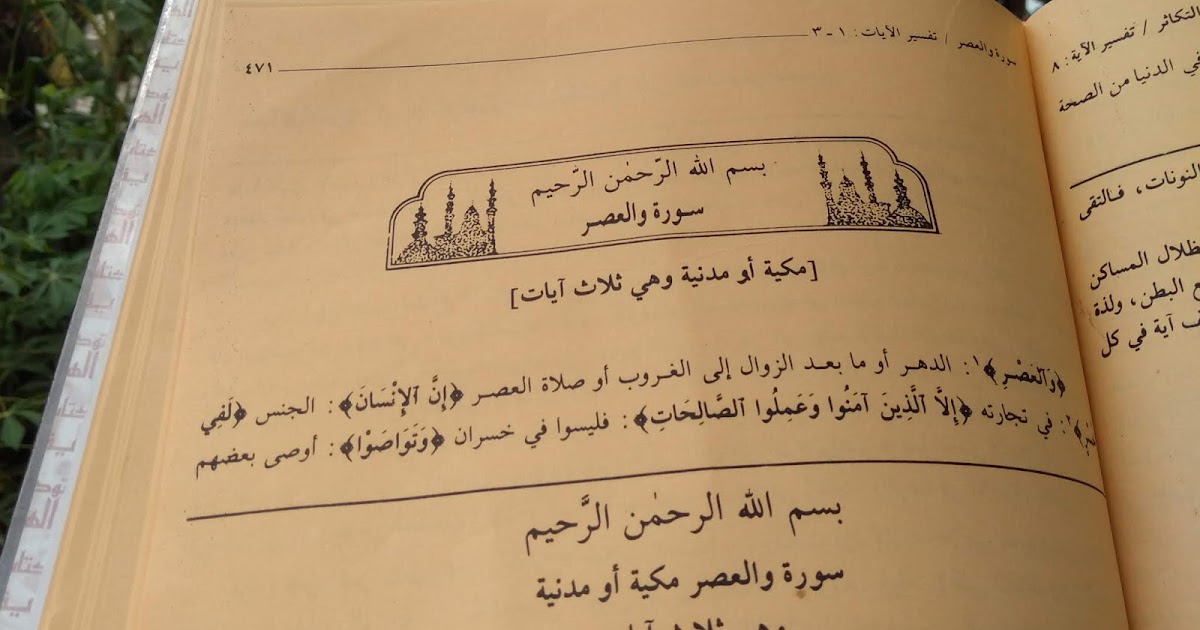 التكاثر / تفسير الآية: ٨
في الدنيا من الصحة
النونات، فـالتقى
ظلال المساكن
البطن، ولذة
آية في كل
سورة والعصر / تفسير الآيات: ١ - ٣
٤٧١
بسم الله الرّحمٰن الرَّحيم
سـورة والعصـر
[مكية أو مدنية وهي ثلاث آيات]
﴿وَٱلْعَصْـرِ﴾١: الدهـر أو ما بعـد الزوال إلى الغـروب أو صلاة العصـر ﴿إِنَّ ٱلإِنْسَانَ﴾: الجنس ﴿لَفِي
﴾٢: في تجارته ﴿إِلاَّ ٱلَّذِينَ آمَنُوا وَعَمِلُوا ٱلصَّالِحَاتِ﴾: فليسوا في خسران ﴿وَتَوَاصَوْا﴾: أوصى بعضهم
بسم الله الرحمٰن الرَّحيم
سورة والعصر مكية أو مدنية
وهي ثلاث